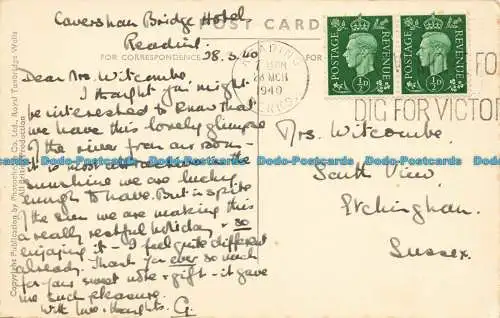 Caversham Bridge Hotel
Reading.
POST CARD
FOR CORRESPONDENCE
28.3.40
Dear Mrs. Witcombe.
I thought you might
be interested to know that
we have this lovely glimpse
of the river from our room –
it is most in the
sunshine we are lucky
enough to have. But in spite
the even we are making this
a really restful holiday & so
enjoying it – I feel quite different
already. Thank you ever so much
for your sweet note & gift – it gave
me such pleasure.
With love & thoughts. G.
READING
28 MCH
1940
BERKS.
POSTAGE
REVENUE
½D
POSTAGE
REVENUE
½D
FOR
DIG FOR VICTO
Mrs. Witcombe.
South View
Etchingham.
Sussex.
Copyright Publication by Photochrom Co. Ltd., Royal Tunbridge Wells
All rights reserved
Dodo-Postcards Dodo-Postcards Dodo-Postcards Dodo-Postcards Dodo-Postcards